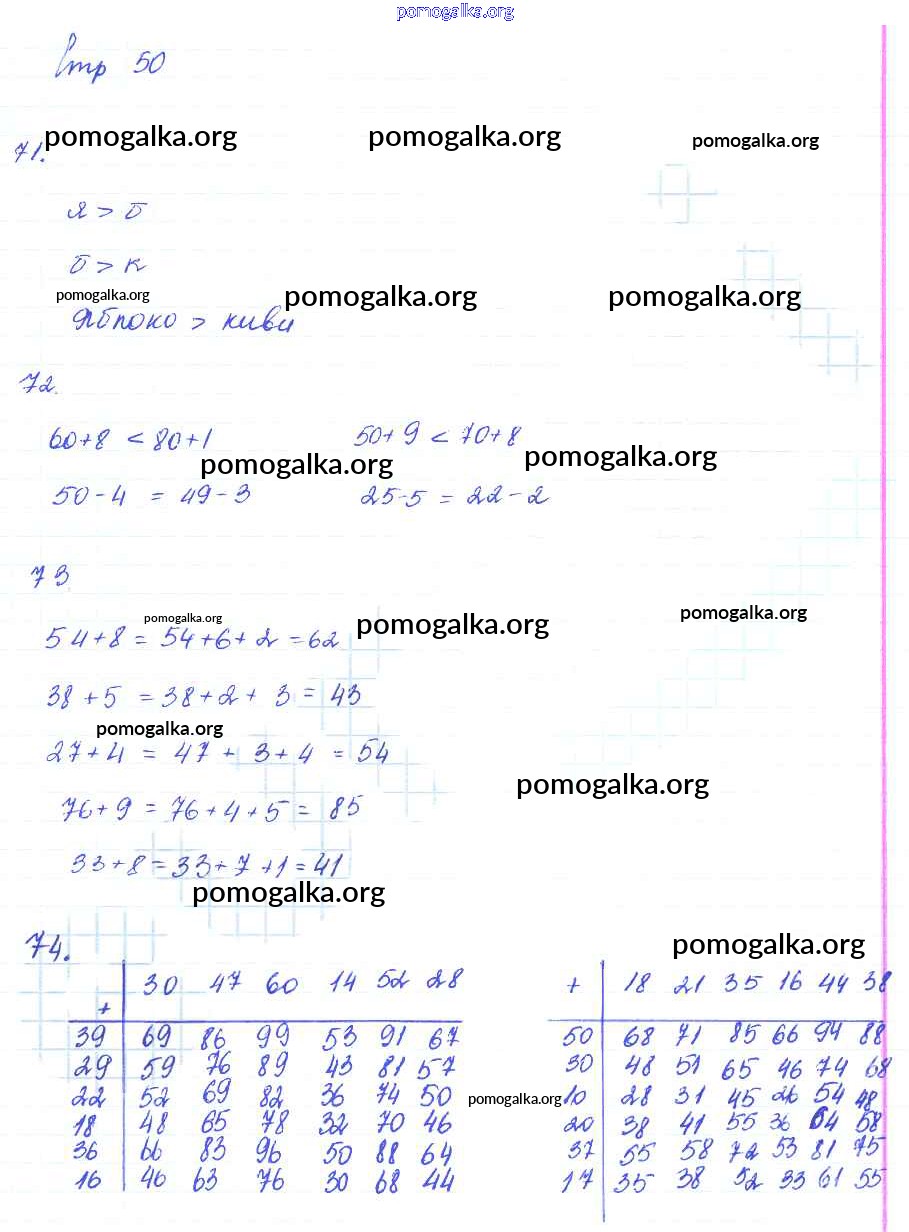 pomogalka.org
Стр 50
pomogalka.org pomogalka.org pomogalka.org
71.
Я > Б
Б > К
pomogalka.org pomogalka.org pomogalka.org
Яблоко > киви
72.
60+8 < 80+1 50+9 < 70+8
pomogalka.org pomogalka.org
50-4 = 49-3 25-5 = 22-2
73
pomogalka.org pomogalka.org pomogalka.org
54+8 = 54+6+2 = 62
38+5 = 38+2+3 = 43
pomogalka.org
27+4 = 47+3+4 = 54
pomogalka.org
76+9 = 76+4+5 = 85
33+8 = 33+7+1 = 41
pomogalka.org
74. pomogalka.org
+ 30 47 60 14 52 28 + 18 21 35 16 44 38
39 69 86 99 53 91 67 50 68 71 85 66 94 88
29 59 76 89 43 81 57 30 48 51 65 46 74 68
22 52 69 82 36 74 50 pomogalka.org 10 28 31 45 26 54 48
18 48 65 78 32 70 46 20 38 41 55 36 64 58
36 66 83 96 50 88 64 37 55 58 72 53 81 75
16 46 63 76 30 68 44 17 35 38 52 33 61 55